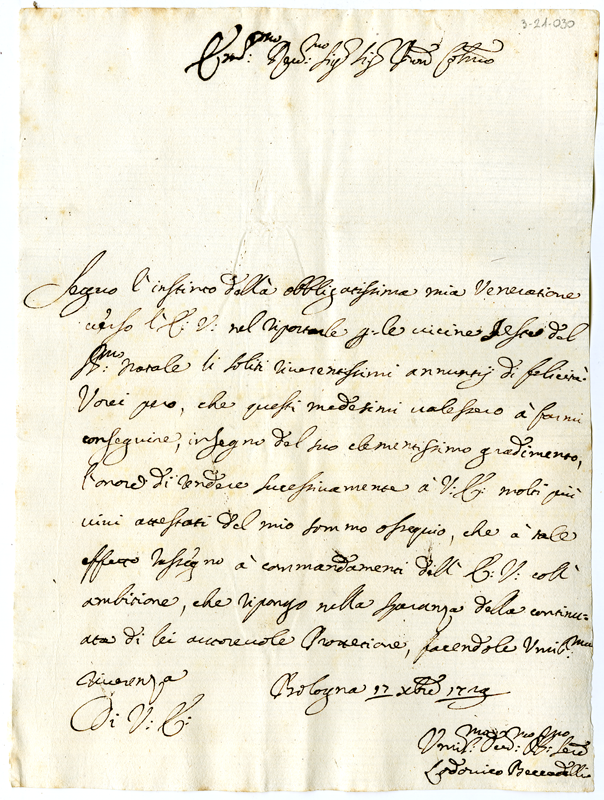 3-21-030
Em.mo Rev.mo Sig.r Sig.r Pron Col.mo
Seguo l'instinto della obbligatissima mia Veneratione
verso l'E: V: nel riportarle p. le vicine Feste del
SS.mo Natale li soliti riverentissimi annuntij di felicità.
Vorei pero, che questi medesimi valessero à farmi
conseguire, in segno del suo clementissimo gradimento,
l'onore di rendere sucessivamente à V: E: molti più
vivi attestati del mio sommo ossequio, che à tale
effetto rassegno à commandamenti dell' E: V: coll'
ambitione, che ripongo nella speranza della continu=
ata di lei autorevole Protettione, facendole Umil.ma
riverenza
Bologna 17 Xbre
Di V: E:
Umil.mo Dev.mo Obb.mo Serv.
Lodovico Beccadelli